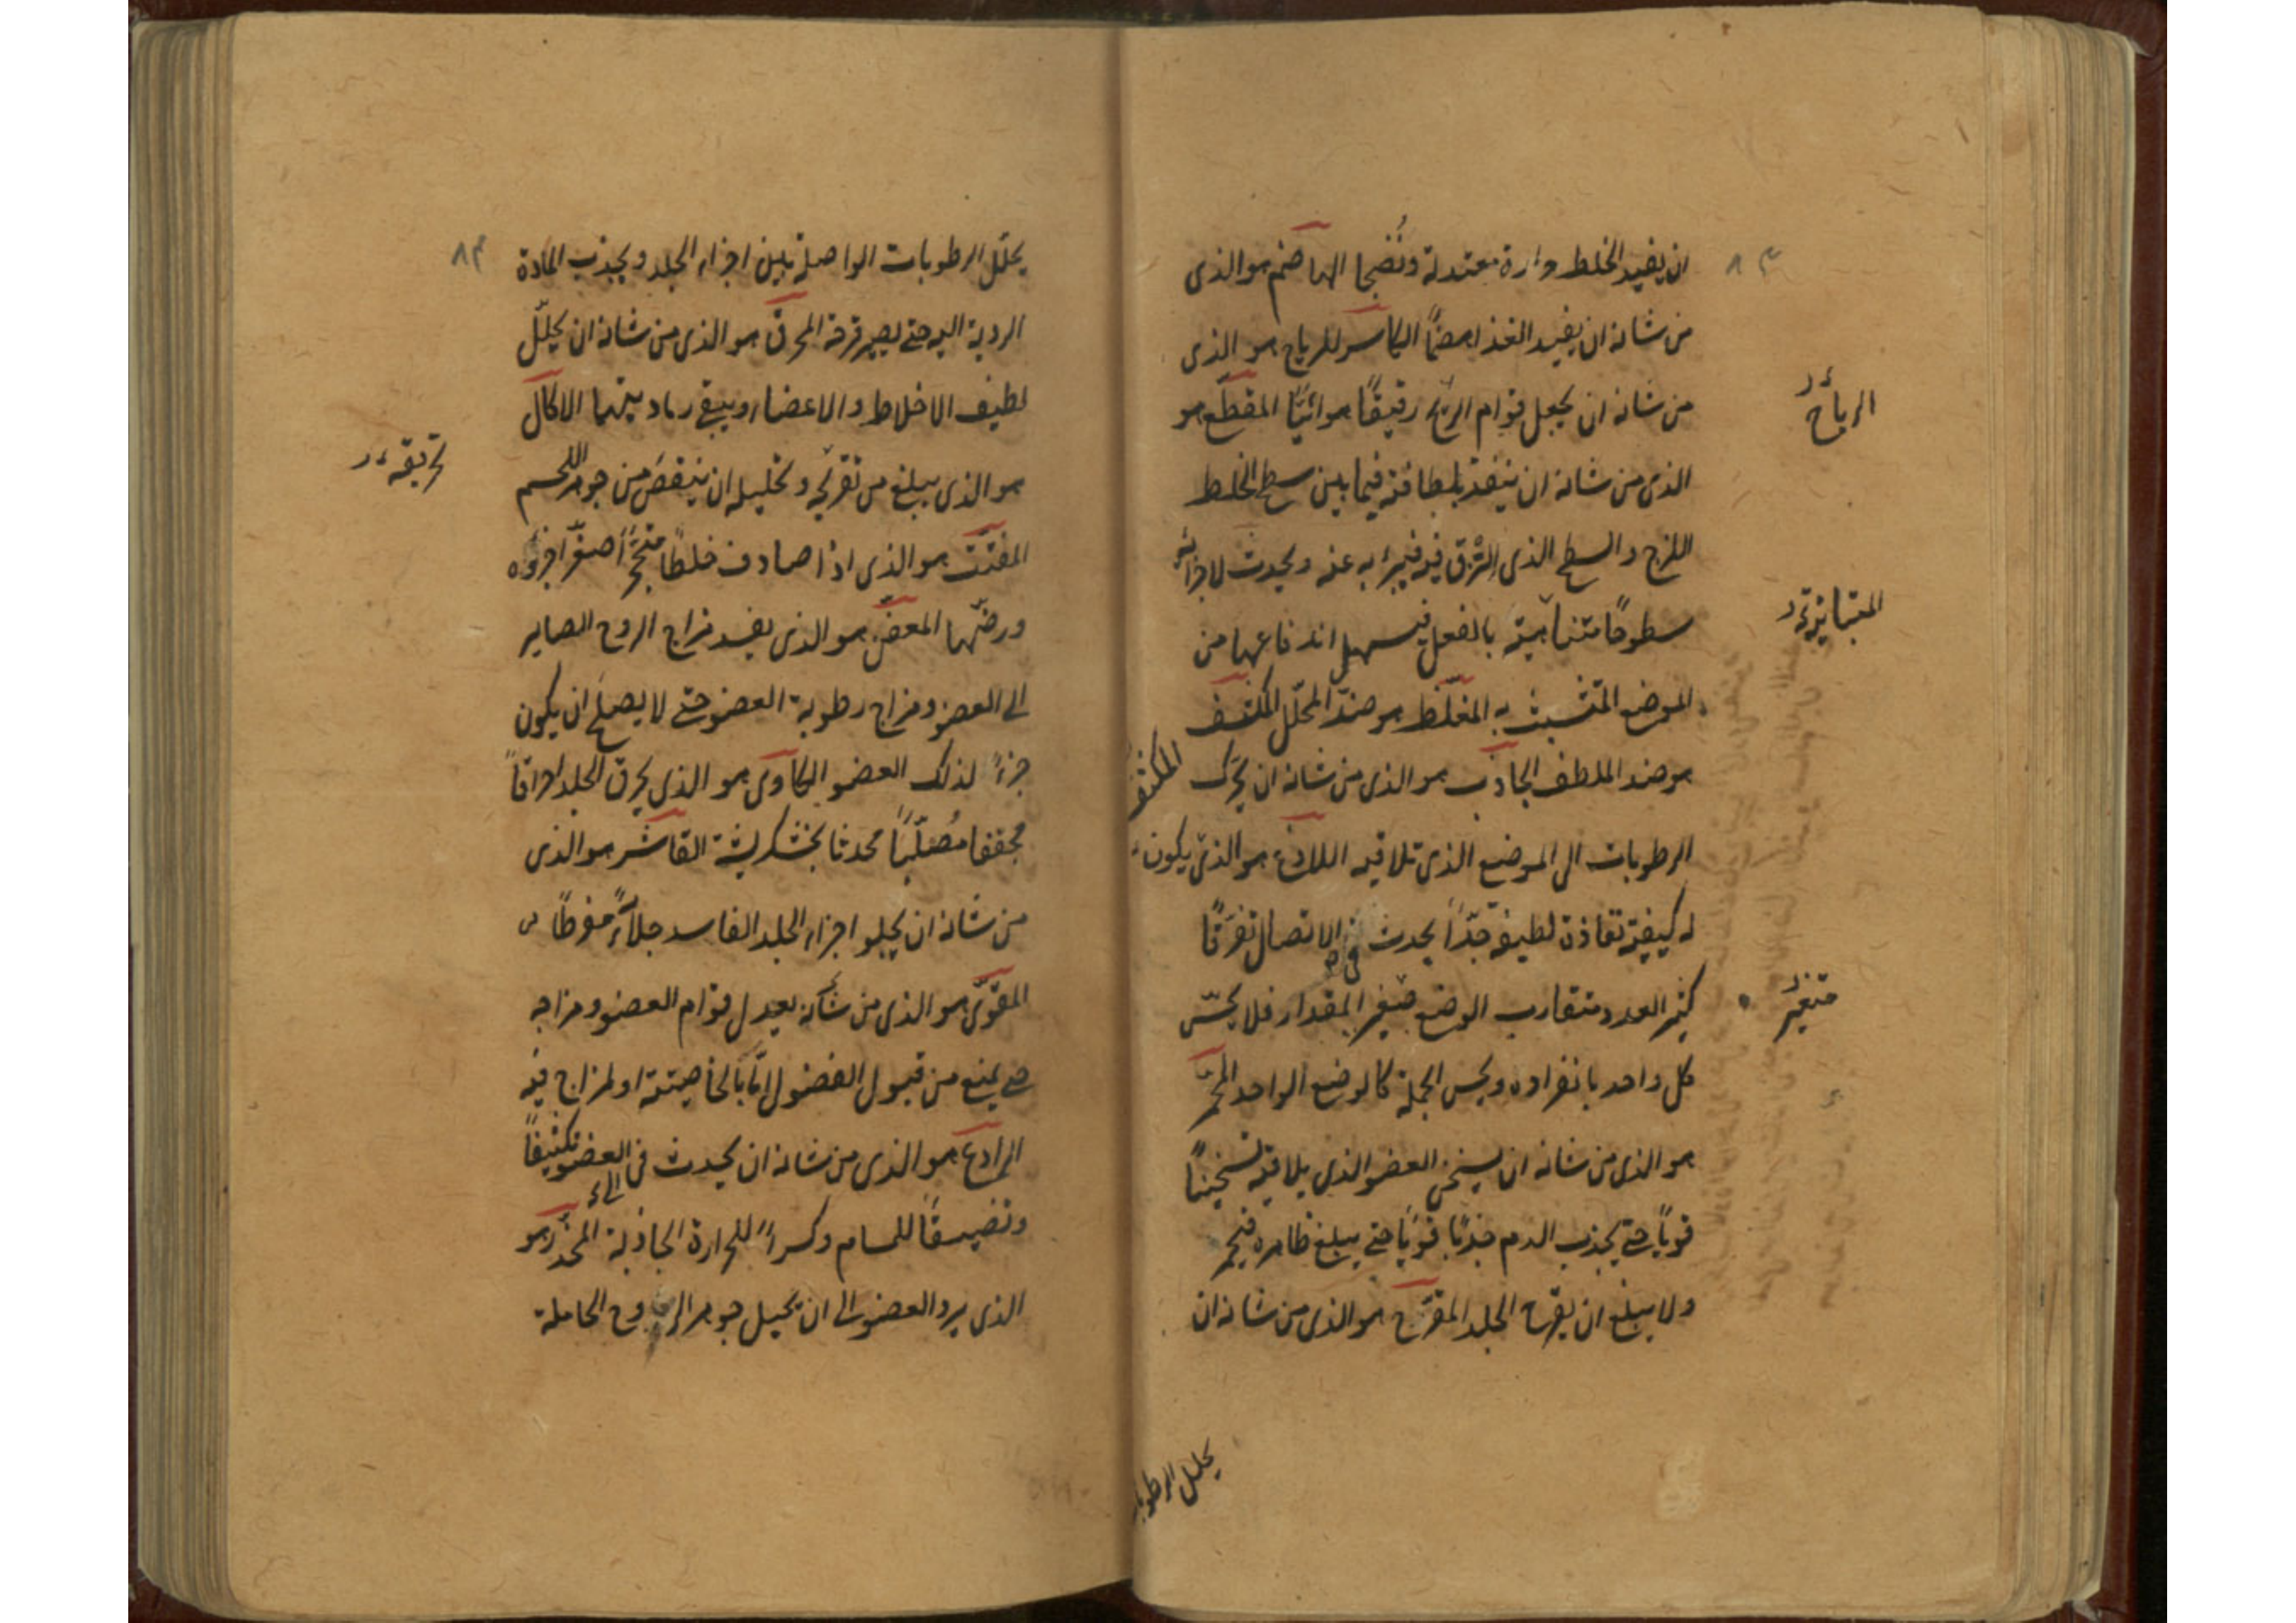 ان يفيد الخلط حرارة معتدلة ونُضجا الهاضم هو الذى
من شانه ان يفيد الغذا هضمًا الكاسر للرياح هو الذى
من شانه ان يجعل قوام الريح رقيقًا هوائيًا المقطّع هو
الرياح
الذى من شانه ان ينفذ بلطافته فيما بين سطح الخلط
اللزج والسطح الذى التزق فيه فيبرئه عنه ويحدث لاجزائه
سطوحًا متباينة بالفعل فيسهل اندفاعها من
الموضع المتشبث به المغلّظ هو ضدّ المحلّل المكثف
هو ضد الملطف الجاذب هو الذى من شانه ان يحرّك
المكثف
الرطوبات الى الموضع الذى تلاقيه اللاذع هو الذى يكون
له كيفية نفاذة لطيفة جدّاً يحدث فى الاتصال تفرّقًا
كثير العدد متقارب الوضع صغير المقدار فلا يحسّ
كل واحد بانفراده ويحس الجملة كالوضع الواحد المحمّر
هو الذى من شانه ان يسخن العضو الذى يلاقيه تسخينًا
قوياً حتى يجذب الدم جذبًا قويًا حتى يبلغ ظاهره فيحمر
ولا يبلغ ان يقرح الجلد المقرّح هو الذى من شانه ان
يحلل الرطوبات
يحلّل الرطوبات الواصلة بين اجزاء الجلد ويجذب المادة
٨٣
الردية اليه حتى يصير قرحة المحرق هو الذى من شانه ان يحلّل
لطيف الاخلاط والاعضاء ويبقى رماديتها الاكّال
هو الذى يبلغ من تقريحه وتحليله ان ينقص من جوهر اللحم
المفتّت هو الذى اذا صادف خلطًا متحجّرًا صغّر اجزاؤه
ورضّها المعفّن هو الذى يفسد مزاج الروح الصاير
الى العضو ومزاج رطوبة العضو حتى لا يصلح ان يكون
جزءً لذلك العضو الكاوى هو الذى يحرق الجلد احراقاً
مجففا مُصلّبًا محدثا بخشكريشة القاشر هو الذى
من شانه ان يجلو اجزاء الجلد الفاسد جلاءً مفرطًا
المقوّى هو الذى من شانه يعدل قوام العضو ومزاجه
حتى يمنع من قبول الفضول امّا بالخاصيته او لمزاج فيه
الرادع هو الذى من شانه ان يحدث فى العضو تكثيفًا
وتضييقًا للمسام وكسراً للحرارة الجاذبة المخدّر هو
الذى يبرد العضو الى ان يحيل جوهر الروح الحاملة